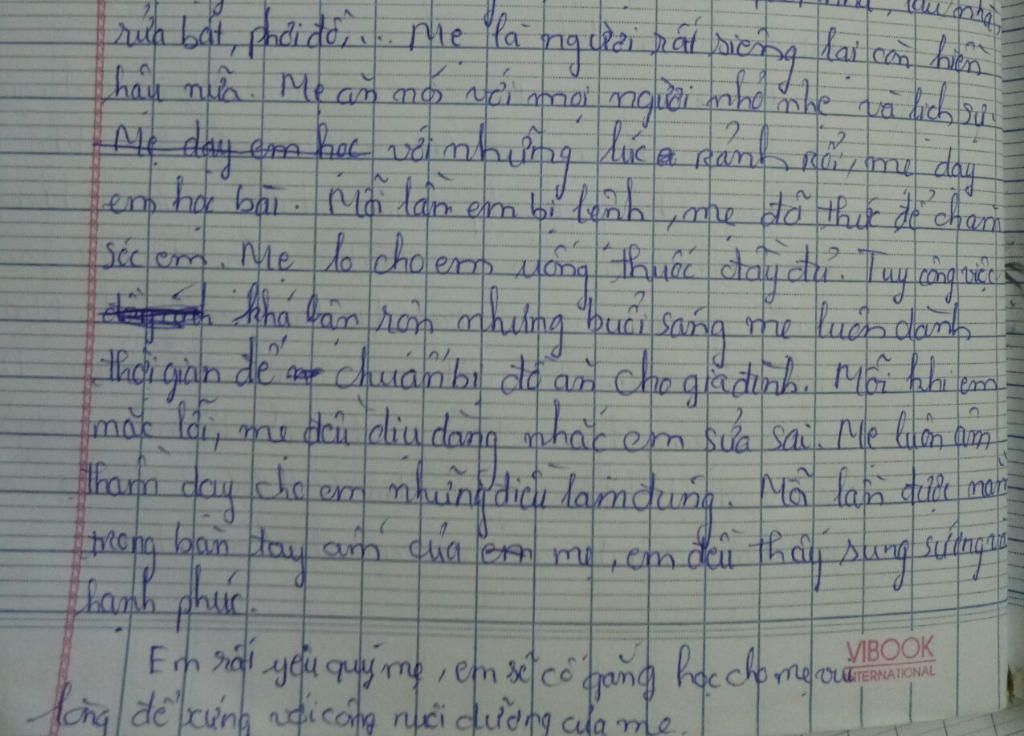 lau nhà,
rửa bát, phơi đồ,... Mẹ là người rất siêng lại còn hiền
hậu nữa. Mẹ ăn nói với mọi người nhỏ nhẹ và lịch sự.
Mẹ dạy em học với những lúc rảnh rỗi, mẹ dạy
em học bài. Mỗi lần em bị bệnh, mẹ đã thức để chăm
sóc em. Mẹ lo cho em uống thuốc đầy đủ. Tuy công việc
khá bận rộn nhưng buổi sáng mẹ luôn dành
thời gian để chuẩn bị đồ ăn cho gia đình. Mỗi khi em
mắc lỗi, mẹ đều dịu dàng nhắc em sửa sai. Mẹ luôn âm
thầm dạy cho em những điều làm đúng. Mỗ lần được nằm
trong bàn tay ấm của em mẹ, em đều thấy sung sướng và
hạnh phúc.
Em rất yêu quý mẹ, em sẽ cố gắng học cho mẹ vui
lòng để xứng với công nuôi dưỡng của mẹ.
VIBOOK
INTERNATIONAL